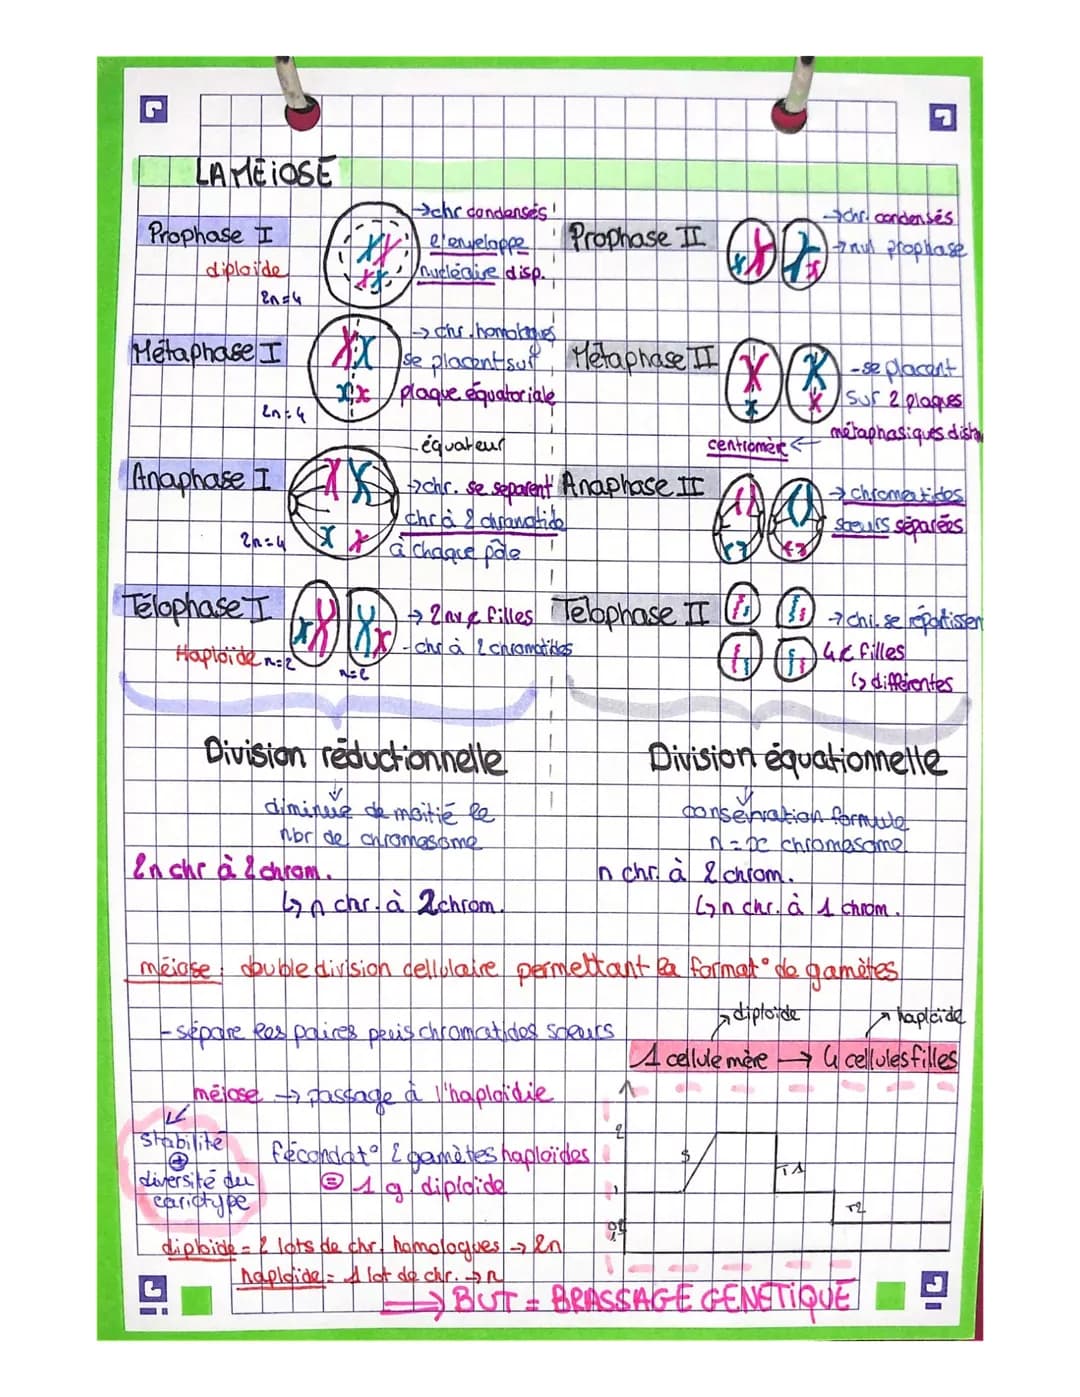 LA MÉIOSE
Prophase I
diploïde
2n=4
→chr condensés
l'enveloppe
nucléaire disp.
Métaphase I
2n=4
→ chr. homologues
se placent sur
plaque équatoriale
équateur
Anaphase I
2n=4
→chr. se separent
chr à 2 chromatide
à chaque pôle
Télophase I
Haploïde n=2
n=2
→ 2 nv ¢ filles
- chr à 2 chromatides
Prophase II
→chr. condensés
→ nvl prophase
Métaphase II
- se placent
sur 2 plaques
métaphasiques
centromère ←
Anaphase II
→ chromatides
sœurs séparées
Telophase II
→ chr. se répartissen
4 ¢ filles
↳ différentes
Division réductionnelle
diminue de moitié le
nbr de chromosome
2n chr à 2 chrom.
↳ n chr. à 2 chrom.
Division équationnelle
conservation formule
chromosome
n chr. à 2 chrom.
↳ n chr. à 1 chrom.
méiose : double division cellulaire permettant la format° de gamètes
- sépare les paires puis chromatides sœurs
diploïde
haploïde
1 cellule mère → 4 cellules filles
méiose → passage à l'haploïdie
stabilité
⊕
diversité du
cariotype
fécondat° 2 gamètes haploïdes
⊜ 1 g. diploïde
2
S
T1
1
T2
0,5
diploïde = 2 lots de chr. homologues → 2n
haploïde = 1 lot de chr. → n
⇒ BUT = BRASSAGE GENETIQUE